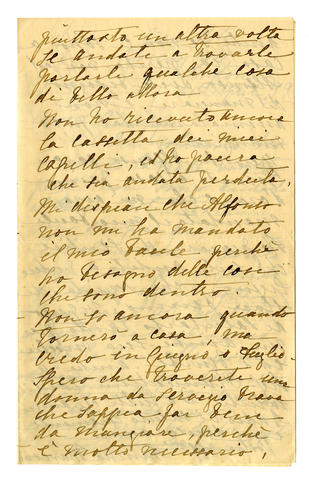 piuttosto un altra volta
se andate a trovarle
portarle qualche cosa
di bello allora
Non ho ricevuto ancora
la cassetta dei miei
capelli, ed ho paura
che sia andata perduta,
Mi dispiace che Alfonso
non mi ha mandato
il mio baule perchè
ho bisogno delle cose
che sono dentro.
Non so ancora quando
tornerò a casa, ma
credo in Giugno o Luglio
Spero che troverete una
donna da servizio brava
che sappia far bene
da mangiare, perchè
è molto necessario,